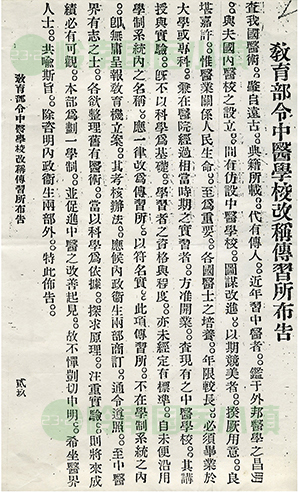 教育部令中醫學校改稱傳習所布告
查我國醫術。發自遠古。典籍所載。代有傳人。近年習中醫者。鑑于外邦醫學之昌明
。與夫國內醫校之設立。間有仿設中醫學校。圖謀改進。以期競美者。揆厥用意。良
堪嘉許。惟醫業關係人民生命。至爲重要。各國醫士之培養。年限較長。必須畢業於
大學或專科。兼在醫院經過相當時期之實習者。方准開業。查現有之中醫學校。其講
授與實驗。旣不以科學爲基礎。學習者之資格與程度。亦未經有標準。自未便沿用
學制系統內之名稱。應一律改爲傳習所。以符名實。此項傳習所。不在學制系統之內
。卽無庸呈報敎育機立案。其考核辦法。應候內政衞生兩部商訂。通令遵照。至中醫
界有志之士。各欲整理舊有醫術。當以科學爲依據。探求原理。注重實驗。則將來成
績必有可觀。本部爲劃一學制。並促進中醫之改善起見。故不憚剴切申明。希坐醫界
人士。共喩斯旨。除咨明內政衞生兩部外。特此佈告。
敎育部令中醫學校改稱傳習所布告
貳玖